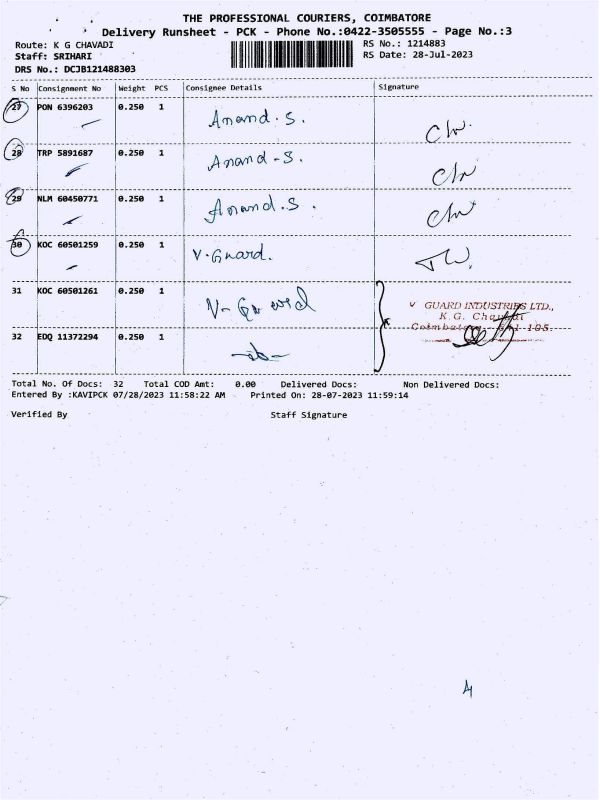 THE PROFESSIONAL COURIERS, COIMBATORE
Delivery Runsheet - PCK - Phone No.:0422-3505555 - Page No.:3
Route: K G CHAVADI RS No.: 1214883
Staff: SRIHARI RS Date: 28-Jul-2023
DRS No.: DCJB121488303
S No Consignment No Weight PCS Consignee Details Signature
27 PON 6396203 0.250 1 Anand.S.
28 TRP 5891687 0.250 1 Anand-S.
29 NLM 60450771 0.250 1 Anand.S.
30 KOC 60501259 0.250 1 V.Guard.
31 KOC 60501261 0.250 1 V-Guard
V GUARD INDUSTRIES LTD.,
K.G. Chavadi
Coimbatore - 641 105.
32 EDQ 11372294 0.250 1 -do-
Total No. Of Docs: 32 Total COD Amt: 0.00 Delivered Docs: Non Delivered Docs:
Entered By :KAVIPCK 07/28/2023 11:58:22 AM Printed On: 28-07-2023 11:59:14
Verified By Staff Signature